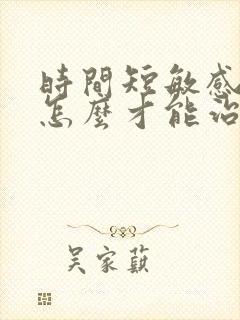 時間短敏感
怎麼才能治
吳家蘇